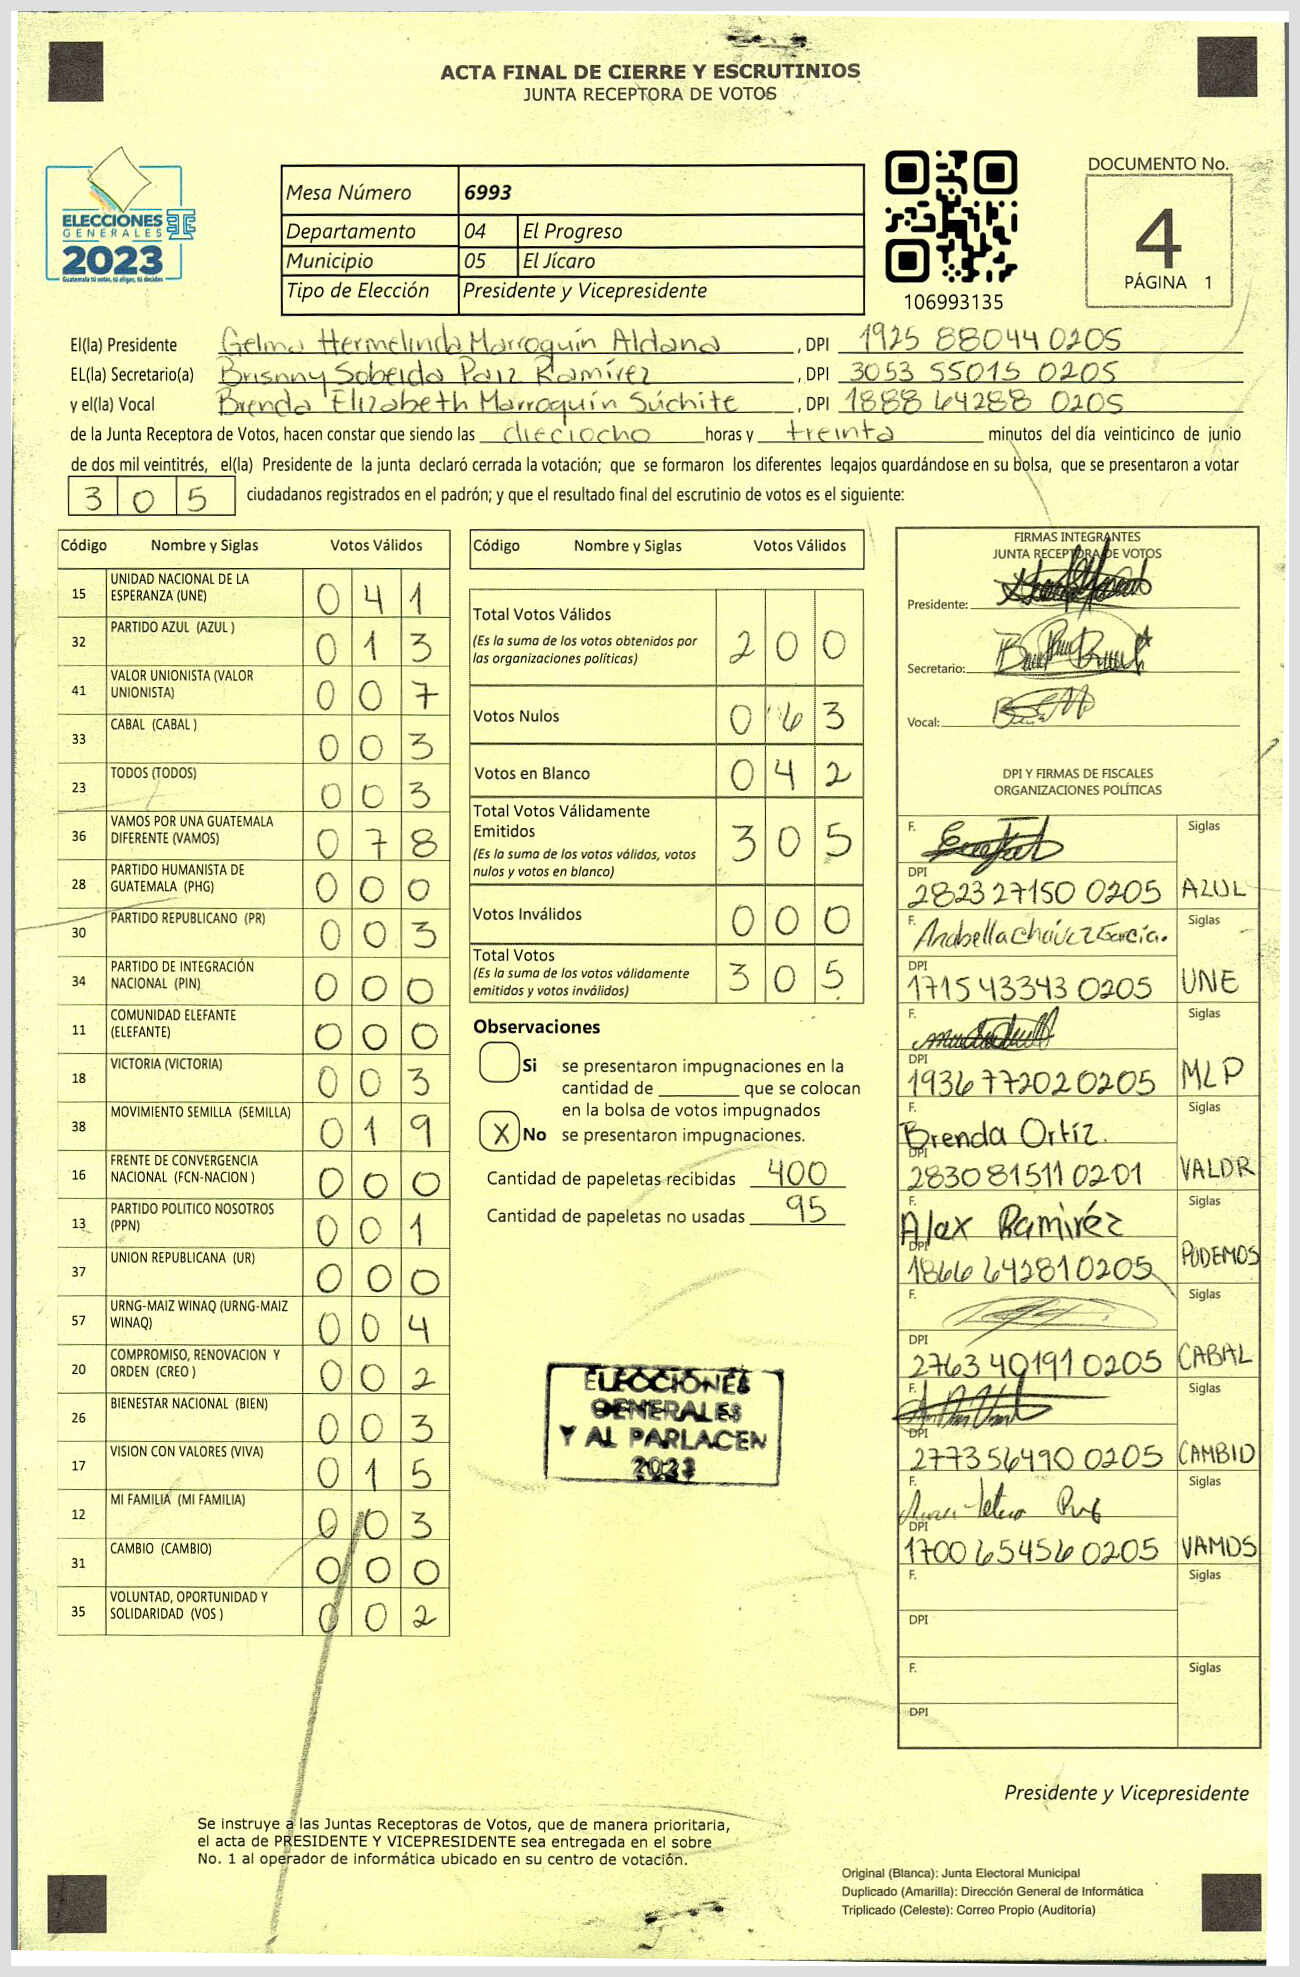 ACTA FINAL DE CIERRE Y ESCRUTINIOS
JUNTA RECEPTORA DE VOTOS
ELECCIONES
GENERALES
2023
Guatemala tú votas, tú eliges, tú decides
Mesa Número 6993
Departamento 04 El Progreso
Municipio 05 El Jícaro
Tipo de Elección Presidente y Vicepresidente
106993135
DOCUMENTO No.
4
PÁGINA 1
El(la) Presidente Gelma Hermelinda Marroquín Aldana, DPI 1925 88044 0205
EL(la) Secretario(a) Brisnny Sobeida Paiz Ramírez, DPI 3053 55015 0205
y el(la) Vocal Brenda Elizabeth Marroquín Súchite, DPI 1888 64288 0205
de la Junta Receptora de Votos, hacen constar que siendo las dieciocho horas y treinta minutos del día veinticinco de junio
de dos mil veintitrés, el(la) Presidente de la junta declaró cerrada la votación; que se formaron los diferentes legajos guardándose en su bolsa, que se presentaron a votar
3 0 5 ciudadanos registrados en el padrón; y que el resultado final del escrutinio de votos es el siguiente:
Código Nombre y Siglas Votos Válidos
15 UNIDAD NACIONAL DE LA ESPERANZA (UNE) 0 4 1
32 PARTIDO AZUL (AZUL ) 0 1 3
41 VALOR UNIONISTA (VALOR UNIONISTA) 0 0 7
33 CABAL (CABAL ) 0 0 3
23 TODOS (TODOS) 0 0 3
36 VAMOS POR UNA GUATEMALA DIFERENTE (VAMOS) 0 7 8
28 PARTIDO HUMANISTA DE GUATEMALA (PHG) 0 0 0
30 PARTIDO REPUBLICANO (PR) 0 0 3
34 PARTIDO DE INTEGRACIÓN NACIONAL (PIN) 0 0 0
11 COMUNIDAD ELEFANTE (ELEFANTE) 0 0 0
18 VICTORIA (VICTORIA) 0 0 3
38 MOVIMIENTO SEMILLA (SEMILLA) 0 1 9
16 FRENTE DE CONVERGENCIA NACIONAL (FCN-NACION ) 0 0 0
13 PARTIDO POLITICO NOSOTROS (PPN) 0 0 1
37 UNION REPUBLICANA (UR) 0 0 0
57 URNG-MAIZ WINAQ (URNG-MAIZ WINAQ) 0 0 4
20 COMPROMISO, RENOVACION Y ORDEN (CREO ) 0 0 2
26 BIENESTAR NACIONAL (BIEN) 0 0 3
17 VISION CON VALORES (VIVA) 0 1 5
12 MI FAMILIA (MI FAMILIA) 0 0 3
31 CAMBIO (CAMBIO) 0 0 0
35 VOLUNTAD, OPORTUNIDAD Y SOLIDARIDAD (VOS ) 0 0 2
Código Nombre y Siglas Votos Válidos
Total Votos Válidos 2 0 0
(Es la suma de los votos obtenidos por
las organizaciones políticas)
Votos Nulos 0 6 3
Votos en Blanco 0 4 2
Total Votos Válidamente
Emitidos 3 0 5
(Es la suma de los votos válidos, votos
nulos y votos en blanco)
Votos Inválidos 0 0 0
Total Votos 3 0 5
(Es la suma de los votos válidamente
emitidos y votos inválidos)
Observaciones
Si se presentaron impugnaciones en la
cantidad de ________ que se colocan
en la bolsa de votos impugnados
X No se presentaron impugnaciones.
Cantidad de papeletas recibidas 400
Cantidad de papeletas no usadas 95
ELECCIONES
GENERALES
Y AL PARLACEN
2023
FIRMAS INTEGRANTES
JUNTA RECEPTORA DE VOTOS
Presidente:
Secretario:
Vocal:
DPI Y FIRMAS DE FISCALES
ORGANIZACIONES POLÍTICAS
F. Siglas
DPI
2823 27150 0205 AZUL
F. Anabella Chávez García. Siglas
DPI
1715 43343 0205 UNE
F. Siglas
DPI
1936 77202 0205 MLP
F. Siglas
Brenda Ortíz.
DPI
2830 81511 0201 VALOR
F. Siglas
Alex Ramiréz
DPI
1866 64281 0205 PODEMOS
F. Siglas
DPI
2763 40191 0205 CABAL
F. Siglas
DPI
2773 56490 0205 CAMBIO
F. Siglas
DPI
1700 65456 0205 VAMOS
F. Siglas
DPI
F. Siglas
DPI
Presidente y Vicepresidente
Se instruye a las Juntas Receptoras de Votos, que de manera prioritaria,
el acta de PRESIDENTE Y VICEPRESIDENTE sea entregada en el sobre
No. 1 al operador de informática ubicado en su centro de votación.
Original (Blanca): Junta Electoral Municipal
Duplicado (Amarilla): Dirección General de Informática
Triplicado (Celeste): Correo Propio (Auditoría)